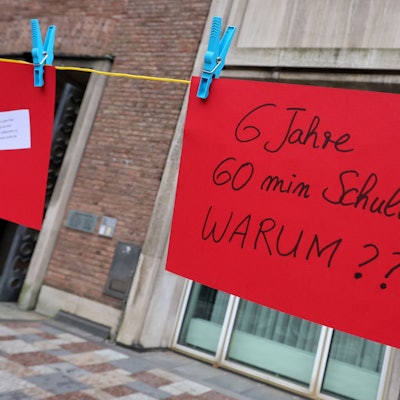 6 Jahre
60 min Schul
WARUM ??